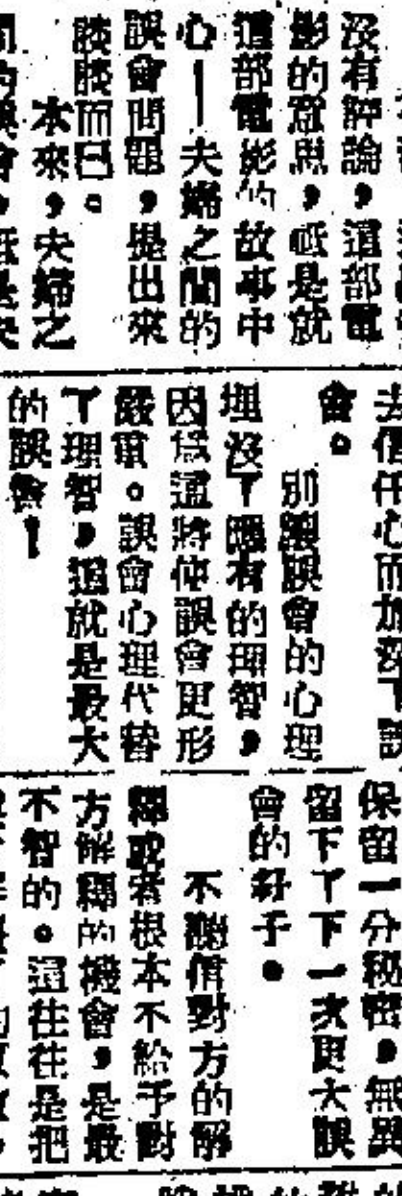 沒有評論，這部電
影的意思，祇是就
這部電影的故事中
心—夫婦之間的
誤會問題，提出來
談談而已。
本來，夫婦之
間的誤會，祇是夫
去信任心而加深了誤
會。
別讓誤會的心理
埋沒了既有的理智，
因為這將使誤會更形
嚴重。誤會心理代替
了理智，這就是最大
的誤會！
保留一分秘密，無異
留下了下一次更大誤
會的種子。
不相信對方的解
釋或者根本不給予對
方解釋的機會，是最
不智的。這往往是把